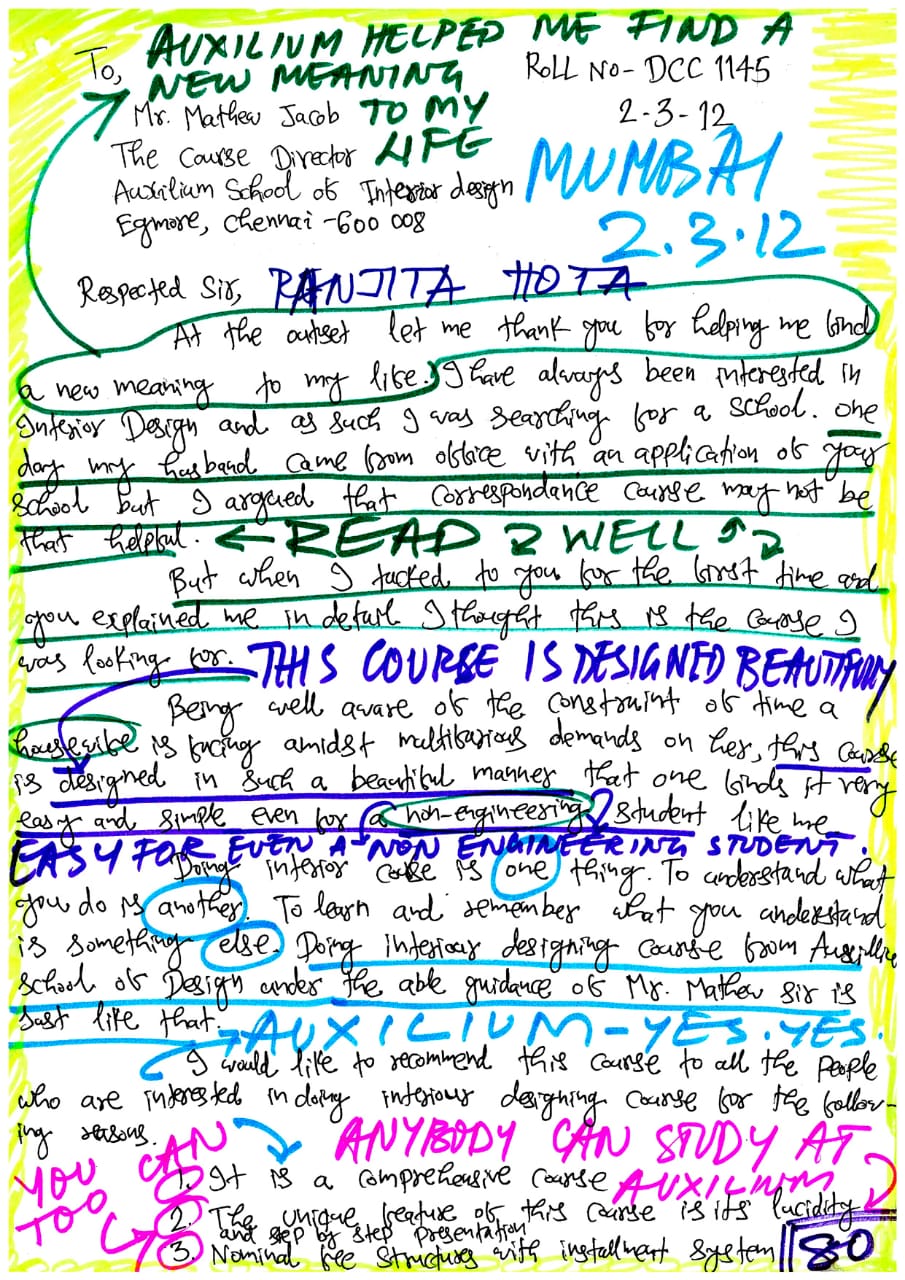 AUXILIUM HELPED ME FIND A
NEW MEANING
TO MY
LIFE
To,
Roll No- DCC 1145
Mr. Mathew Jacob
2-3-12
The Course Director
Auxilium School of Interior design
Egmore, Chennai -600 008
MUMBAI
2.3.12
Respected Sir,
RANJITA HOTA
At the outset let me thank you for helping me find
a new meaning to my life. I have always been interested in
Interior Design and as such I was searching for a school. one
day my husband came from office with an application of your
school but I argued that correspondance course may not be
that helpful.
← READ 2 WELL
But when I tacked to you for the first time and
you explained me in detail I thought this is the course I
was looking for.
THIS COURSE IS DESIGNED BEAUTIFULLY
Being well aware of the constraint of time a
housewife is facing amidst multifarious demands on her, this course
is designed in such a beautiful manner that one finds it very
easy and simple even for a non-engineering student like me
EASY FOR EVEN A NON ENGINEERING STUDENT.
Doing interior course is one thing. To understand what
you do is another. To learn and remember what you understand
is something else. Doing interiour designing course from Auxillium
school of Design under the able guidance of Mr. Mathew sir is
Just like that.
AUXILIUM-YES.YES.
I would like to recommend this course to all the people
who are interested in doing interiour designing course for the follow-
ing reasons.
YOU CAN
TOO
ANYBODY CAN STUDY AT
AUXILIUM
1. It is a comprehensive course
2. The unique feature of this course is its lucidity
and step by step presentation
3. Nominal fee structures with installment system
80